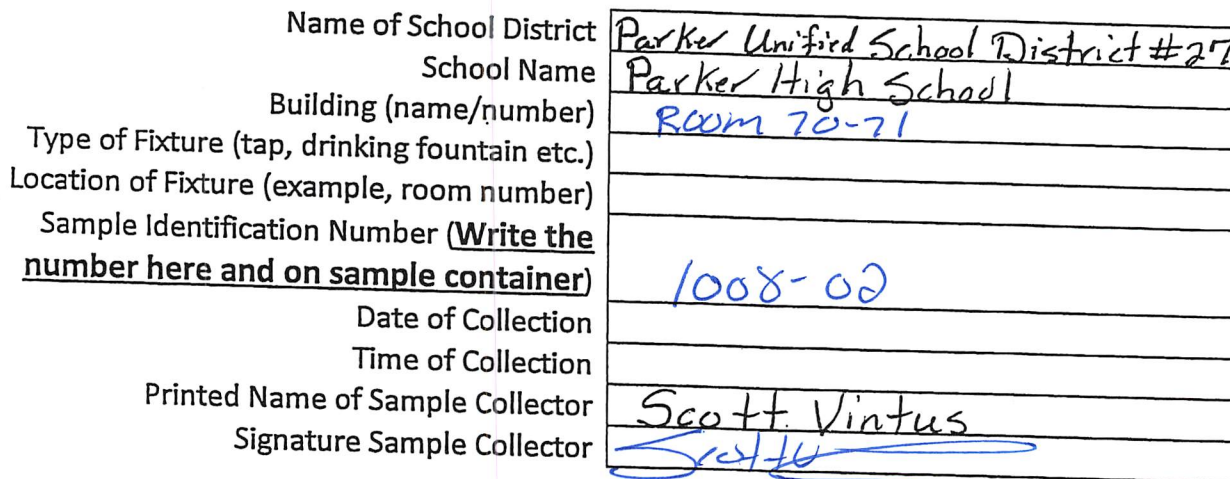 Name of School District Parker Unified School District #27
School Name Parker High School
Building (name/number) Room 70-71
Type of Fixture (tap, drinking fountain etc.)
Location of Fixture (example, room number)
Sample Identification Number (Write the
number here and on sample container) 1008-02
Date of Collection
Time of Collection
Printed Name of Sample Collector Scott Vintus
Signature Sample Collector